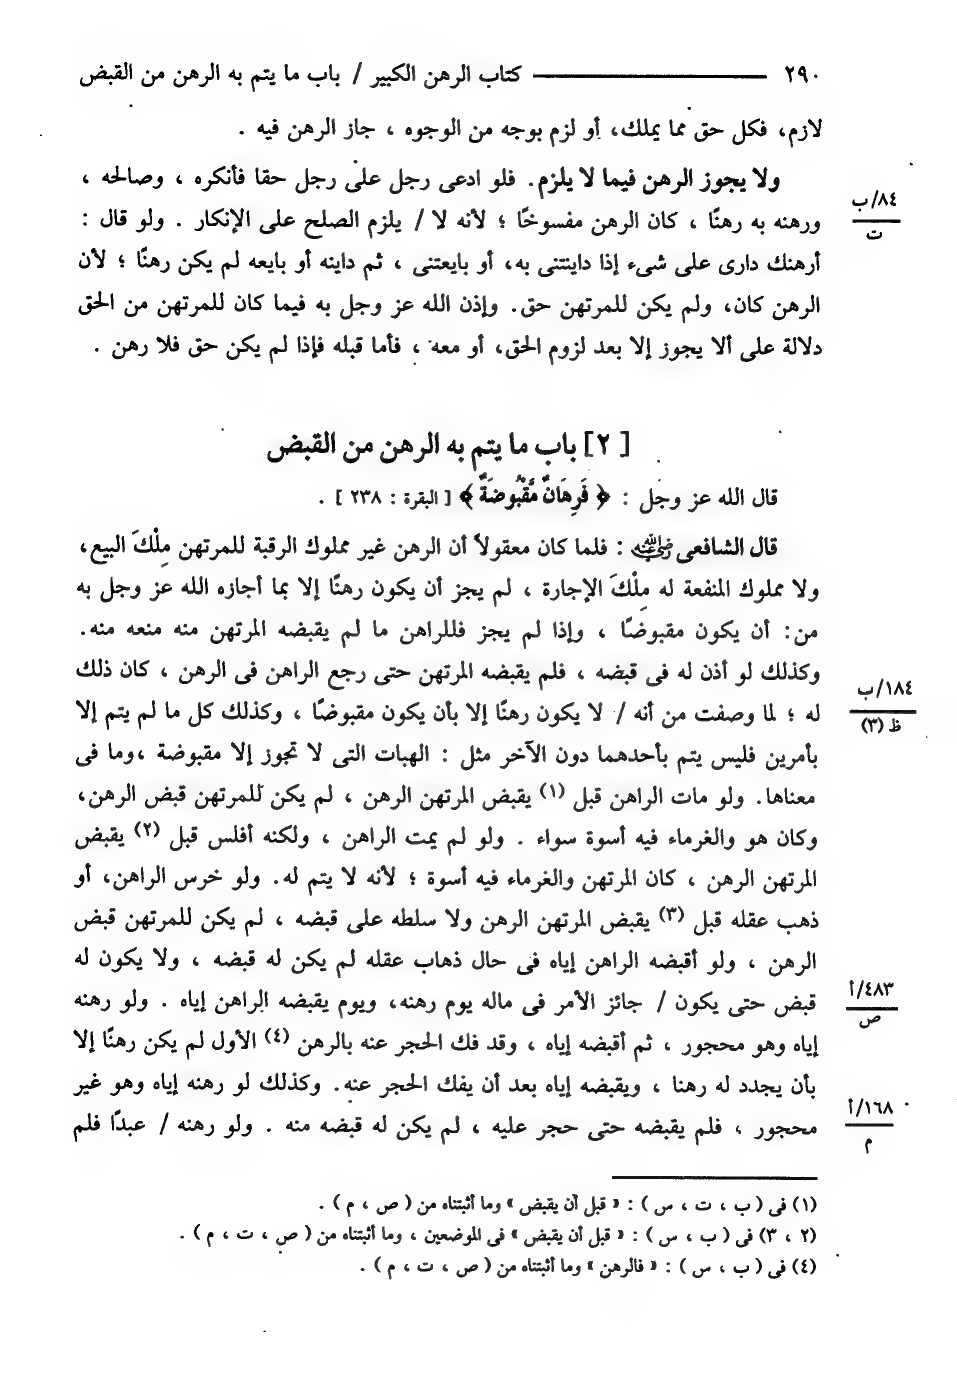 ٢٩٠ ــــــــــ كتاب الرهن الكبير / باب ما يتم به الرهن من القبض
لازم، فكل حق مما يملك، أو لزم بوجه من الوجوه ، جاز الرهن فيه .
ولا يجوز الرهن فيما لا يلزم. فلو ادعى رجل على رجل حقا فأنكره ، وصالحه ،
٨٤/ب
ت
ورهنه به رهنًا ، كان الرهن مفسوخًا ؛ لأنه لا / يلزم الصلح على الإنكار . ولو قال :
أرهنك دارى على شىء إذا داينتنى به، أو بايعتنى ، ثم داينه أو بايعه لم يكن رهنًا ؛ لأن
الرهن كان، ولم يكن للمرتهن حق. وإذن الله عز وجل به فيما كان للمرتهن من الحق
دلالة على ألا يجوز إلا بعد لزوم الحق، أو معه ، فأما قبله فإذا لم يكن حق فلا رهن .
[ ٢ ] باب ما يتم به الرهن من القبض
قال الله عز وجل : ﴿ فَرِهَانٌ مَّقْبُوضَةٌ ﴾ [ البقرة : ٢٣٨ ] .
قال الشافعى رضي الله عنه : فلما كان معقولاً أن الرهن غير مملوك الرقبة للمرتهن مِلْكَ البيع،
ولا مملوك المنفعة له مِلْكَ الإجارة ، لم يجز أن يكون رهنًا إلا بما أجازه الله عز وجل به
من: أن يكون مقبوضًا ، وإذا لم يجز فللراهن ما لم يقبضه المرتهن منه منعه منه.
وكذلك لو أذن له فى قبضه ، فلم يقبضه المرتهن حتى رجع الراهن فى الرهن ، كان ذلك
١٨٤/ب
ظ (٣)
له ؛ لما وصفت من أنه / لا يكون رهنًا إلا بأن يكون مقبوضًا ، وكذلك كل ما لم يتم إلا
بأمرين فليس يتم بأحدهما دون الآخر مثل : الهبات التى لا تجوز إلا مقبوضة ،وما فى
معناها. ولو مات الراهن قبل (١) يقبض المرتهن الرهن ، لم يكن للمرتهن قبض الرهن،
وكان هو والغرماء فيه أسوة سواء . ولو لم يمت الراهن ، ولكنه أفلس قبل (٢) يقبض
المرتهن الرهن ، كان المرتهن والغرماء فيه أسوة ؛ لأنه لا يتم له. ولو خرس الراهن، أو
ذهب عقله قبل (٣) يقبض المرتهن الرهن ولا سلطه على قبضه ، لم يكن للمرتهن قبض
الرهن ، ولو أقبضه الراهن إياه فى حال ذهاب عقله لم يكن له قبضه ، ولا يكون له
٤٨٣/أ
ص
قبض حتى يكون / جائز الأمر فى ماله يوم رهنه، ويوم يقبضه الراهن إياه . ولو رهنه
إياه وهو محجور ، ثم أقبضه إياه ، وقد فك الحجر عنه بالرهن (٤) الأول لم يكن رهنًا إلا
بأن يجدد له رهنا ، ويقبضه إياه بعد أن يفك الحجر عنه. وكذلك لو رهنه إياه وهو غير
١٦٨/أ
م
محجور ، فلم يقبضه حتى حجر عليه ، لم يكن له قبضه منه . ولو رهنه / عبدًا فلم
(١) فى ( ب ، ت ، س ) : « قبل أن يقبض » وما أثبتناه من ( ص ، م ) .
(٢ ، ٣) فى ( ب ، س ) : « قبل أن يقبض » فى الموضعين ، وما أثبتناه من ( ص ، ت ، م ) .
(٤) فى ( ب ، س ) : « فالرهن » وما أثبتناه من ( ص ، ت ، م ) .